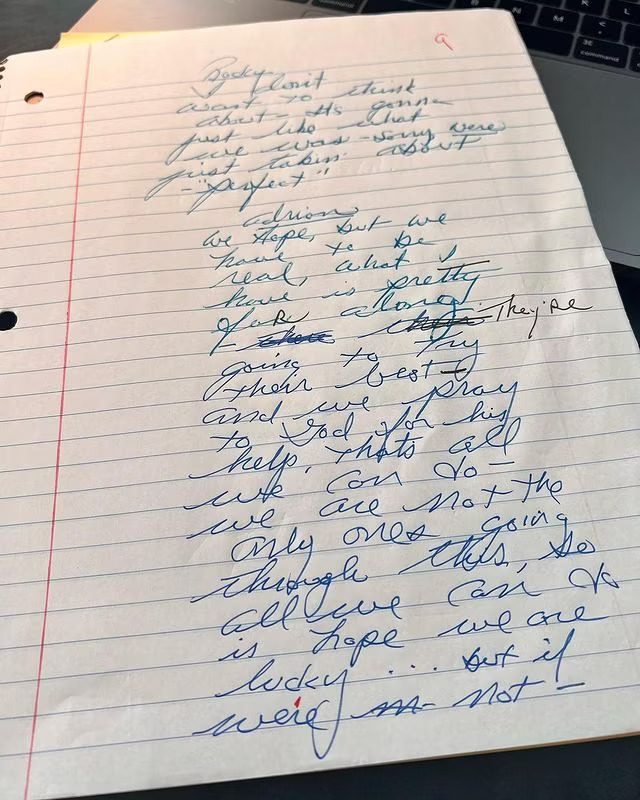 9
Rocky
I don't think
want to
about - its gonna
just like what
we was - sorry were
just takin about
- "perfect"
adrian
we hope, but we
have to be
real, what I
have is pretty
faR along
- They're
going to try
their best -
and we pray
to God for his
help, thats all
we can do -
we are not the
only ones going
though this, so
all we can do
is hope we are
lucky ... but if
were not -
command